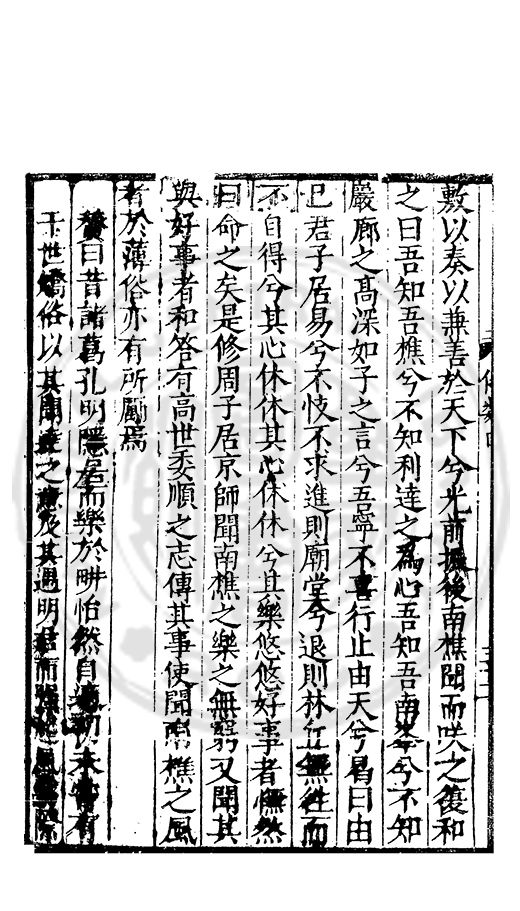 敷以奏以兼善於天下兮光前振後南樵聞而咲之復和
之曰吾知吾樵兮不知利達之為心吾知吾南兮不知
嚴廊之高深如子之言兮吾寧不喜行止由天兮曷曰由
已君子居易兮不忮不求進則廟堂兮退則林丘無徃而
不自得兮其心休休其心休休兮其樂悠悠好事者憮然
曰命之矣是修周子居京師聞南樵之樂之無窮又聞其
與好事者和答有高世委順之志傳其事使聞南樵之風
者於薄俗亦有所勵焉
贊曰昔諸葛孔明隱居而樂於畊怡然自適初未嘗有
干世矯俗以其聞達之意及其遇明君而